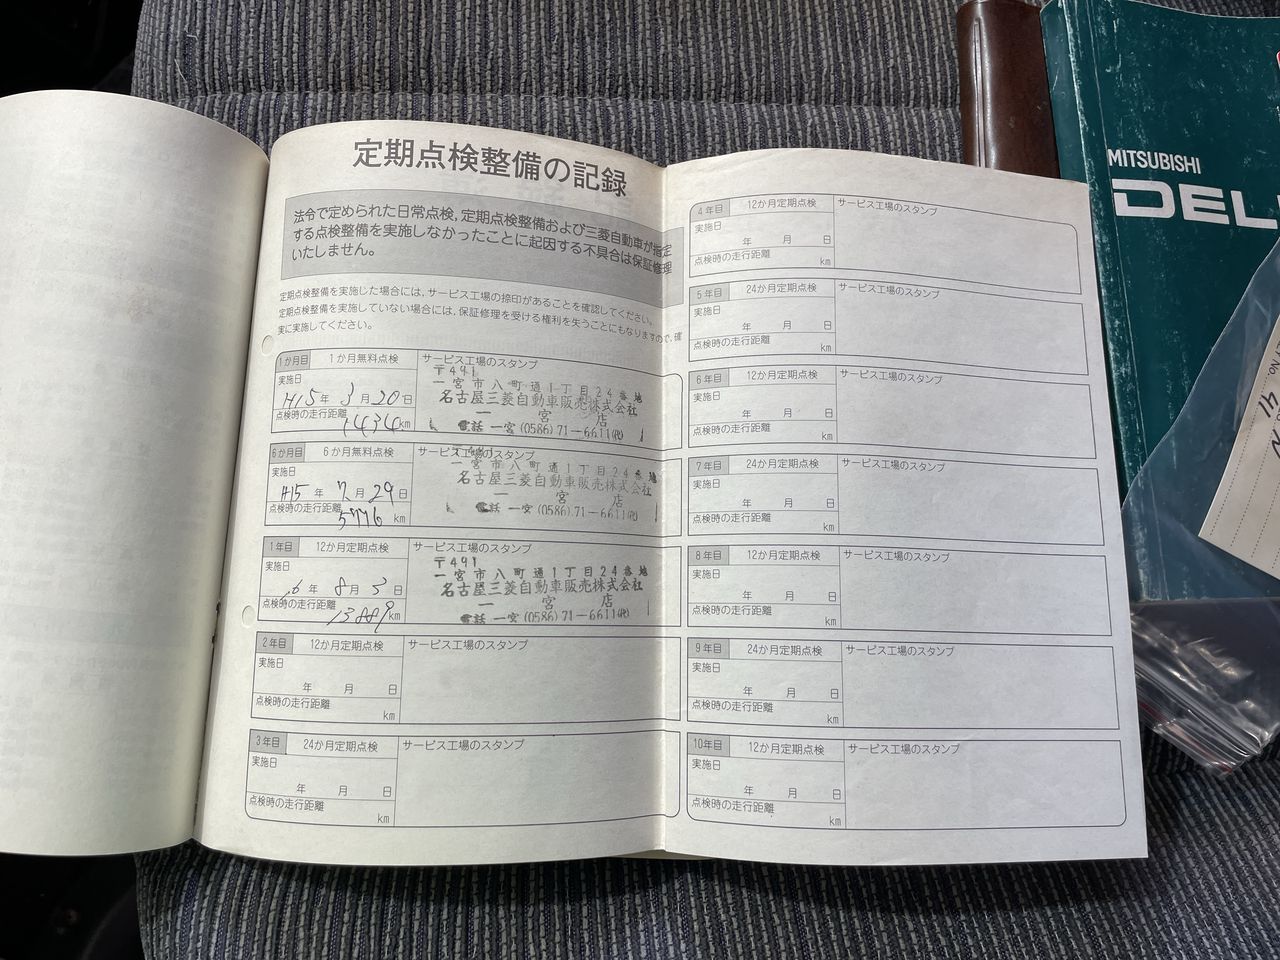 定期点検整備の記録
法令で定められた日常点検,定期点検整備および三菱自動車が指定
する点検整備を実施しなかったことに起因する不具合は保証修理
いたしません。
定期点検整備を実施した場合には,サービス工場の捺印があることを確認してください。
定期点検整備を実施していない場合には,保証修理を受ける権利を失うことにもなりますので,確
実に実施してください。
1か月目 1か月無料点検 サービス工場のスタンプ
実施日
H15年 3月20日
点検時の走行距離
1434km
〒491
一宮市八町通1丁目24番地
名古屋三菱自動車販売株式会社
一宮店
電話 一宮(0586)71-6611(代)
6か月目 6か月無料点検 サービス工場のスタンプ
実施日
H15年 7月29日
点検時の走行距離
5776km
一宮市八町通1丁目24番地
名古屋三菱自動車販売株式会社
一宮店
電話 一宮(0586)71-6611(代)
1年目 12か月定期点検 サービス工場のスタンプ
実施日
6年 8月3日
点検時の走行距離
13889km
〒491
一宮市八町通1丁目24番地
名古屋三菱自動車販売株式会社
一宮店
電話 一宮(0586)71-6611(代)
2年目 12か月定期点検 サービス工場のスタンプ
実施日
年 月 日
点検時の走行距離
km
3年目 24か月定期点検 サービス工場のスタンプ
実施日
年 月 日
点検時の走行距離
km
4年目 12か月定期点検 サービス工場のスタンプ
実施日
年 月 日
点検時の走行距離
km
5年目 24か月定期点検 サービス工場のスタンプ
実施日
年 月 日
点検時の走行距離
km
6年目 12か月定期点検 サービス工場のスタンプ
実施日
年 月 日
点検時の走行距離
km
7年目 24か月定期点検 サービス工場のスタンプ
実施日
年 月 日
点検時の走行距離
km
8年目 12か月定期点検 サービス工場のスタンプ
実施日
年 月 日
点検時の走行距離
km
9年目 24か月定期点検 サービス工場のスタンプ
実施日
年 月 日
点検時の走行距離
km
10年目 12か月定期点検 サービス工場のスタンプ
実施日
年 月 日
点検時の走行距離
km
MITSUBISHI
DEL